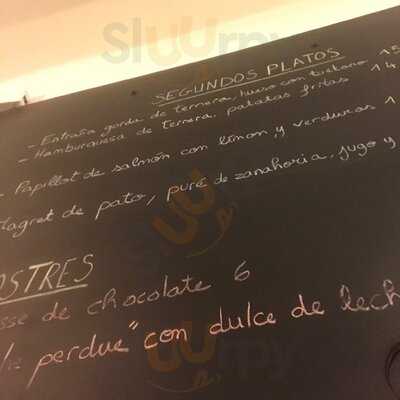 SEGUNDOS PLATOS
- Entraña gorda de ternera, hueso con tuétano 15
- Hamburguesa de Ternera, patatas fritas 14
- Papillot de salmón con limón, y verduras 1
Magret de pato, puré de zanahoria, jugo y
OSTRES
sse de chocolate 6
perdue" con dulce de lech
Sluurpy